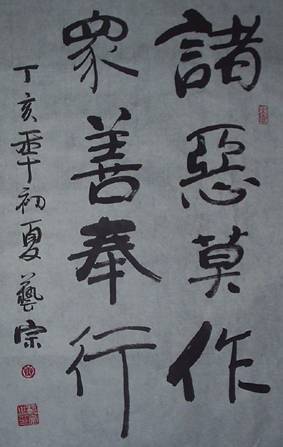 諸惡莫作
眾善奉行
丁亥年初夏藝宗